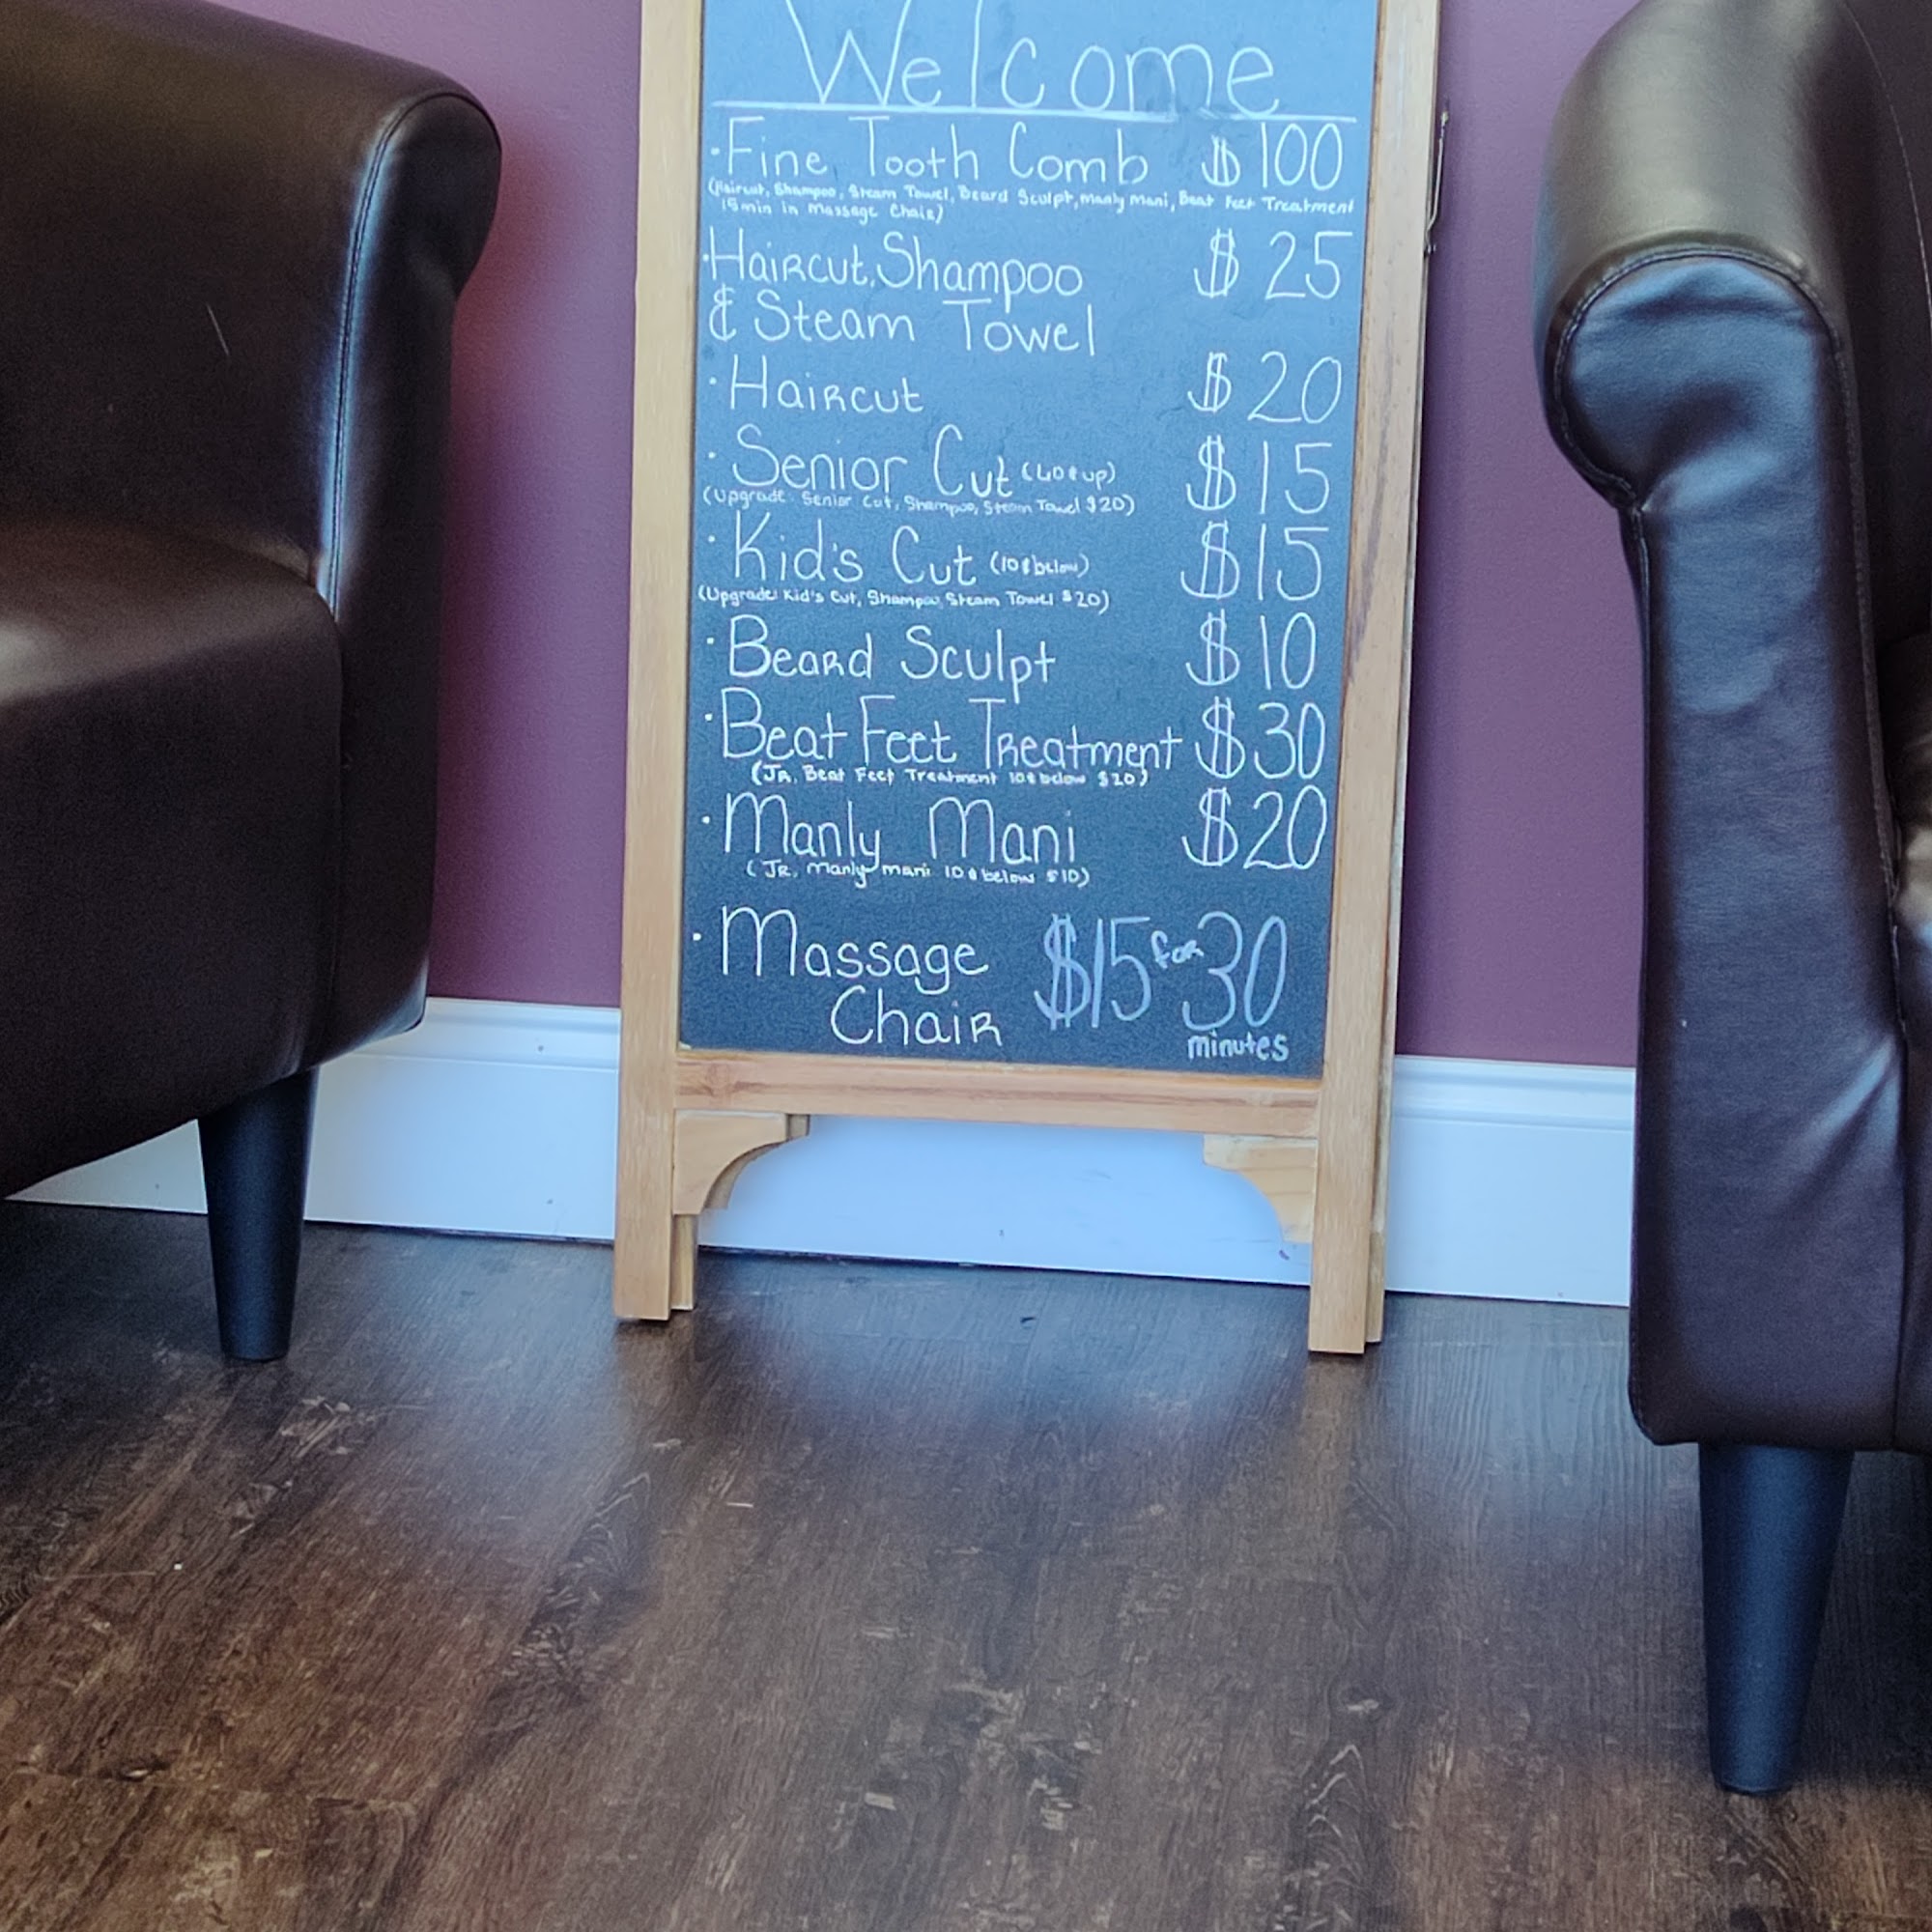 Welcome
·Fine Tooth Comb $100
(Haircut, Shampoo, Steam Towel, Beard Sculpt, Manly Mani, Beat Feet Treatment
15min in Massage Chair)
·Haircut, Shampoo $25
& Steam Towel
·Haircut $20
·Senior Cut (60 & up) $15
(Upgrade: Senior Cut, Shampoo, Steam Towel $20)
·Kid's Cut (10 & below) $15
(Upgrade: Kid's Cut, Shampoo, Steam Towel $20)
·Beard Sculpt $10
·Beat Feet Treatment $30
(Jr. Beat Feet Treatment 10 & below $20)
·Manly Mani $20
(Jr. Manly mani 10 & below $10)
·Massage $15 for 30
Chair minutes